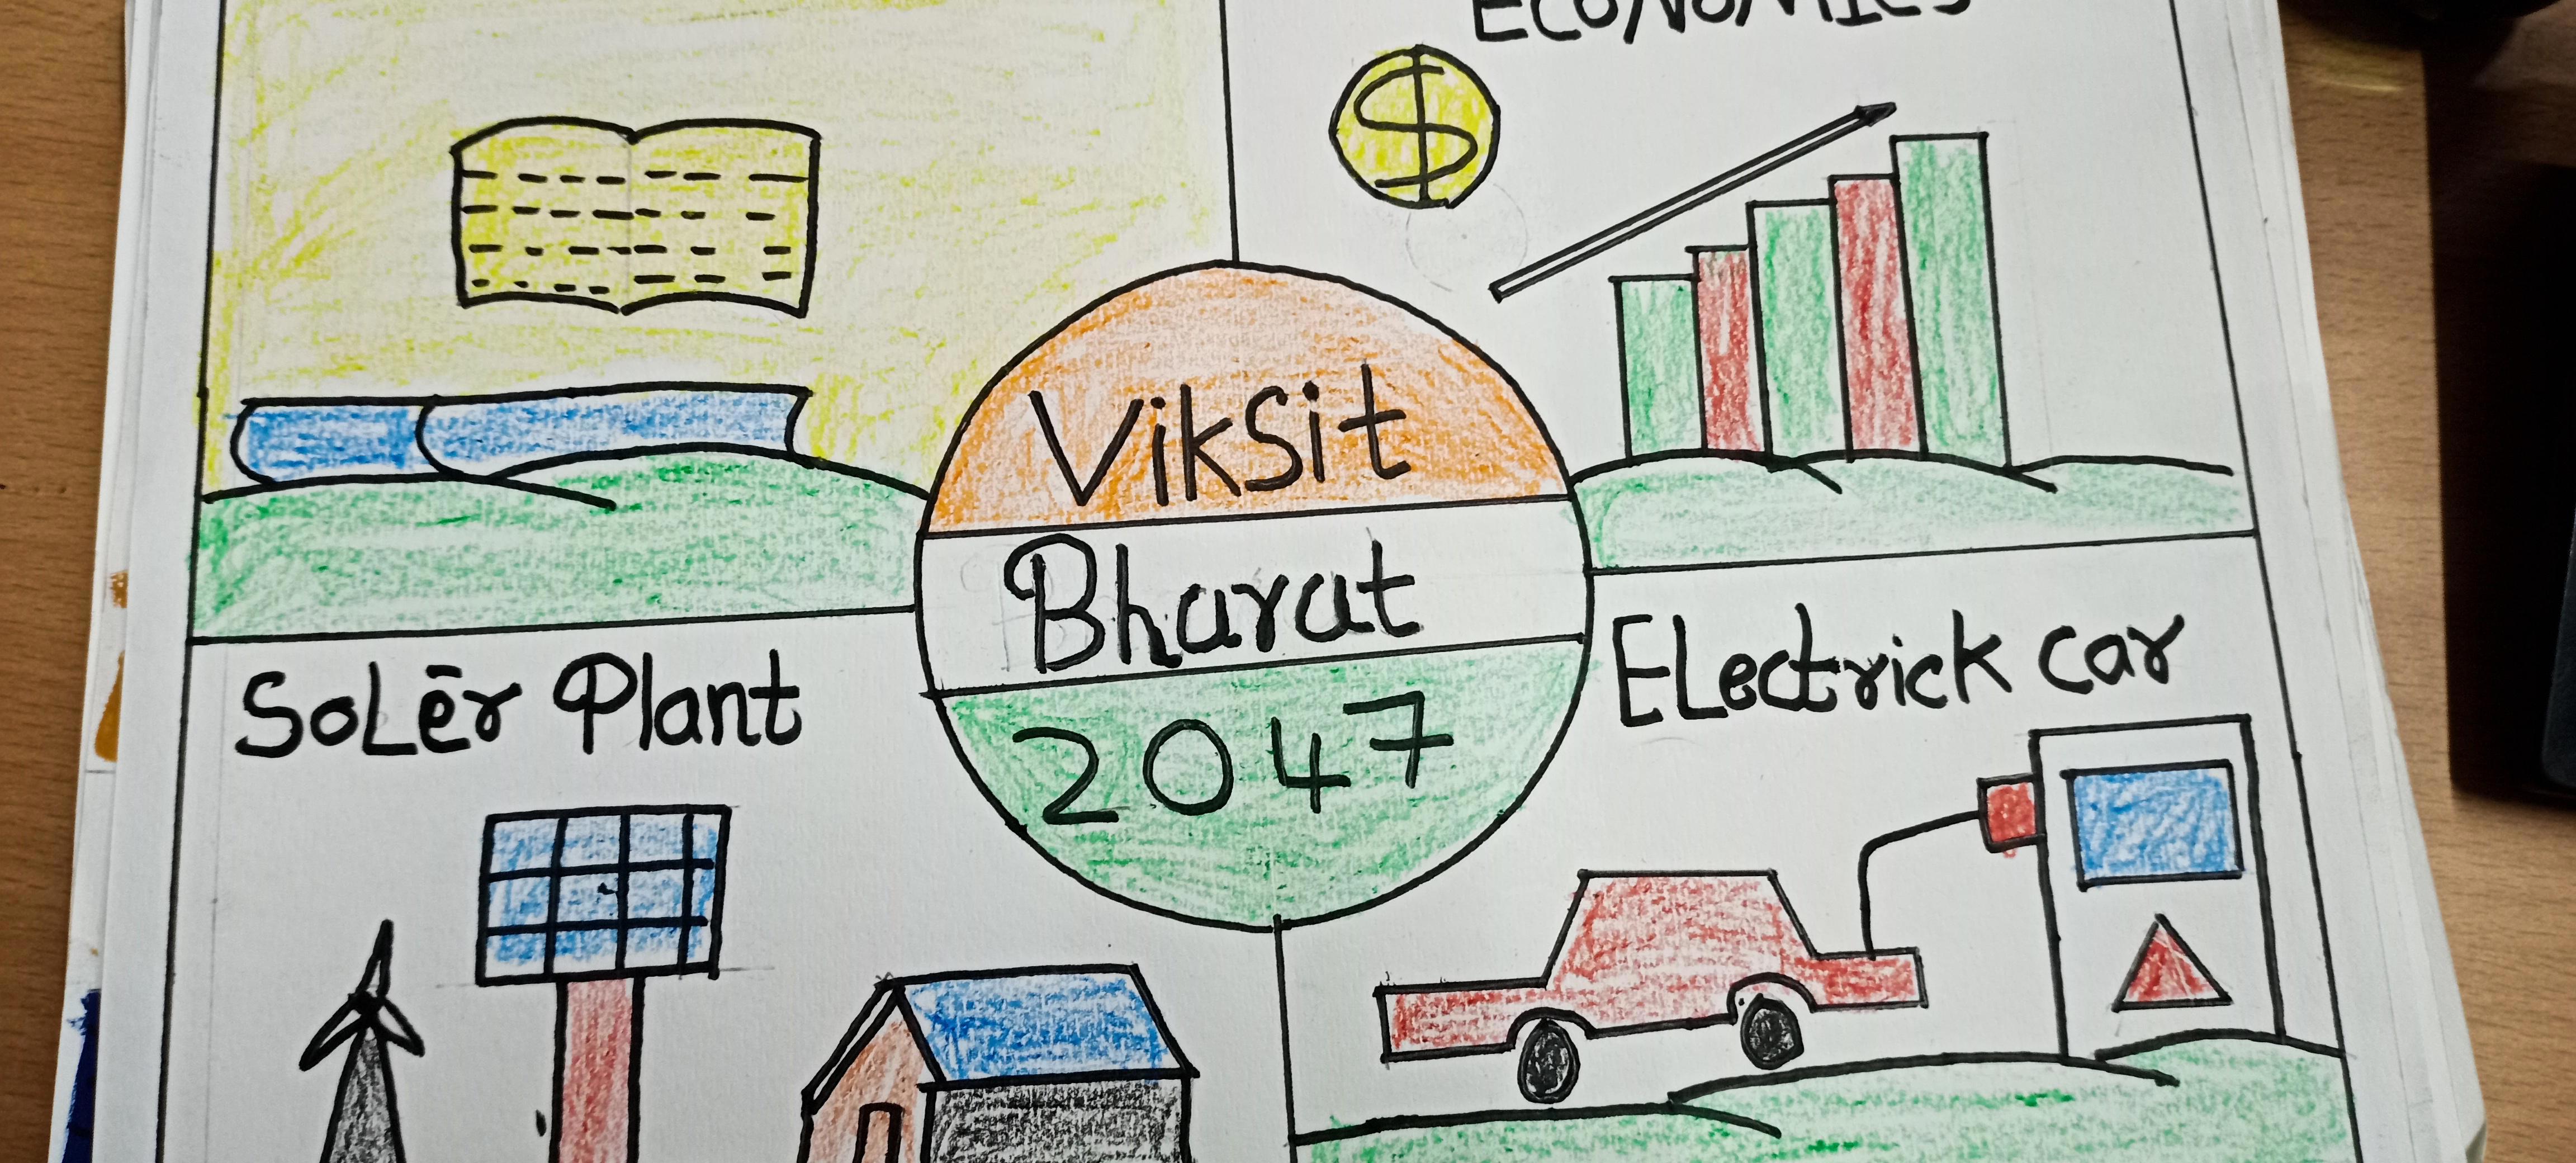 ECONOMICS
$
Viksit
Bharat
2047
SoLēr Plant
ELectrick car